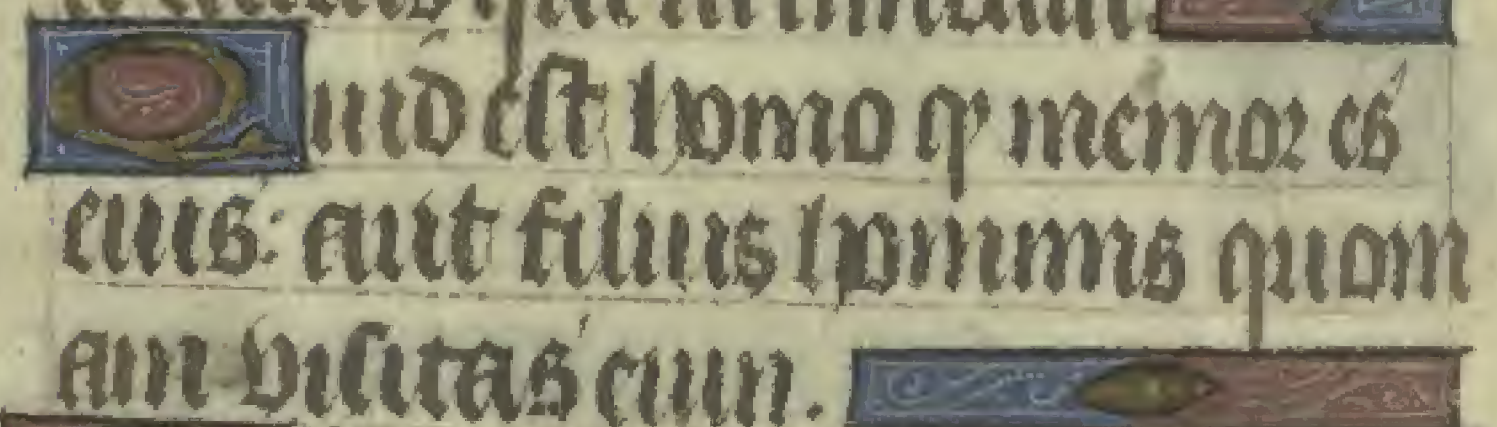 Quid est homo q memor es
eius: aut filius hominis quom
am visitas eum.